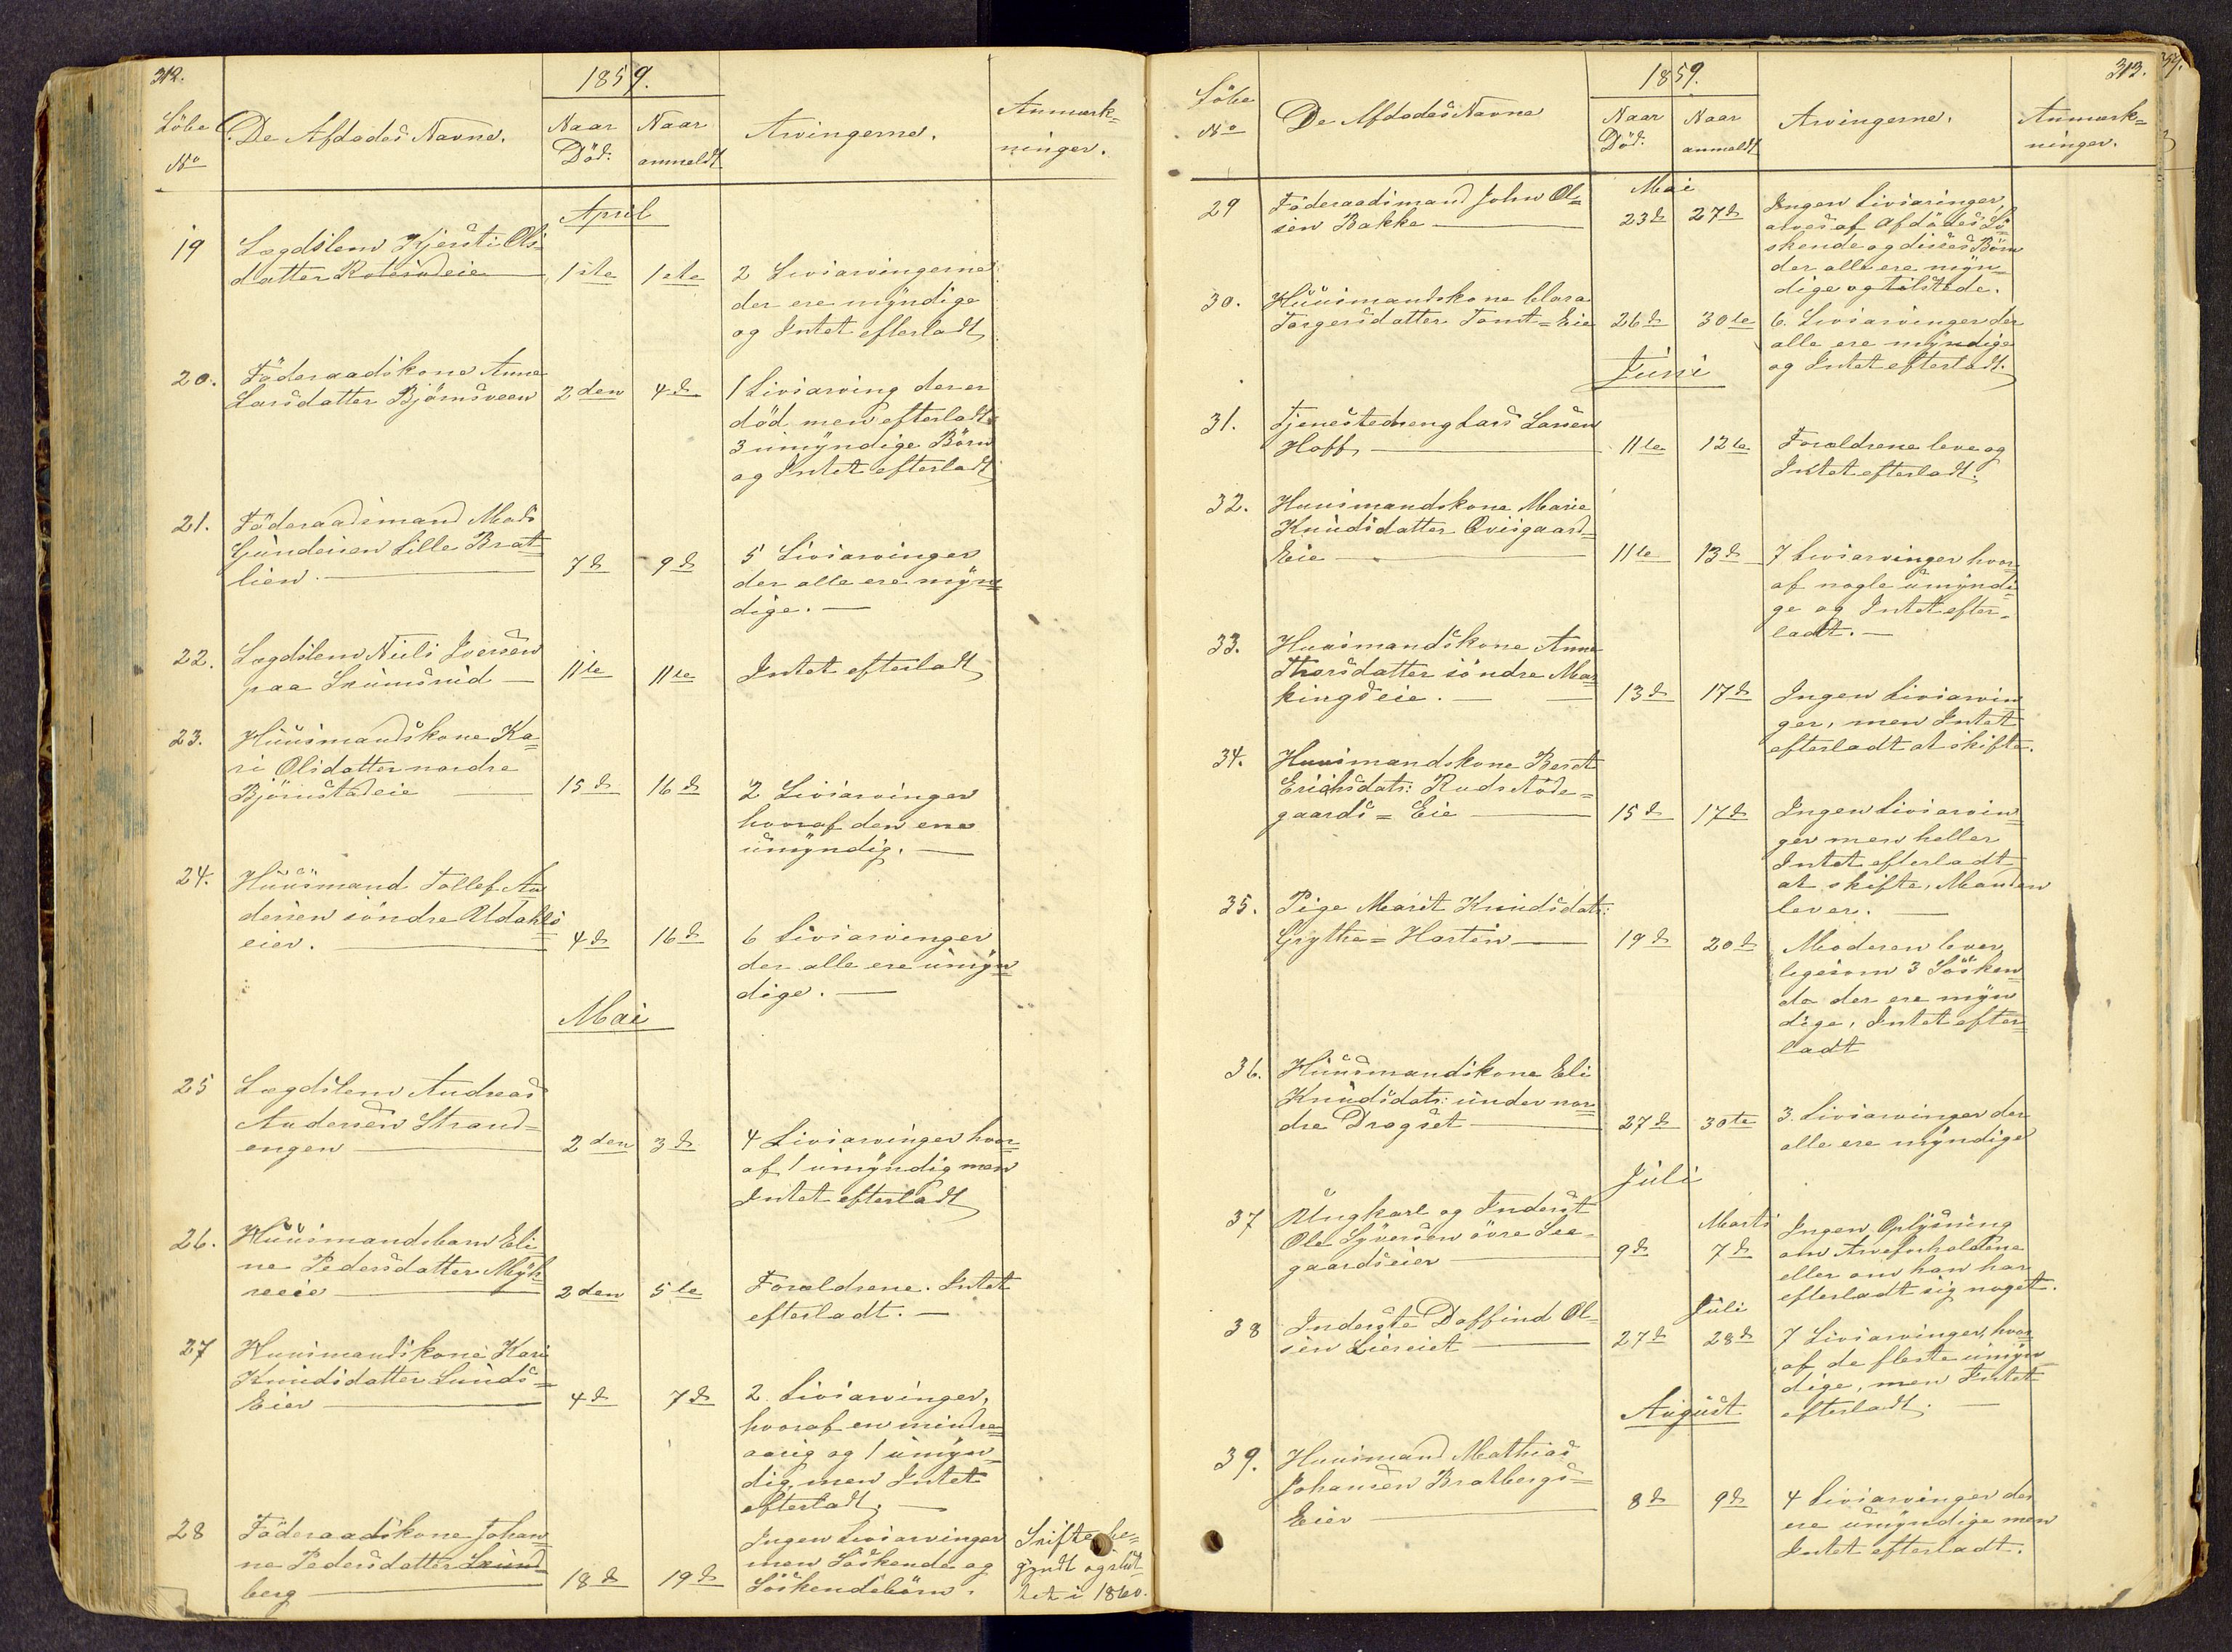 312.
1859.
Löbe No
De Afdödes Navne.
Naar Död.
Naar anmeldt
Arvingerne.
Anmærk=
ninger.
April
19 Lægdslem Kjersti Ols
datter 1ste 1ste 2 Livsarvingerne
der ere myndige
og Intet efterladt
20. Föderaadskone Anne
Larsdatter Björnsveen 2den 4d 1 Livsarving der er
död men efterladt
3 umyndige Börn
og Intet efterladt
21. Föderaadsmand Mads
Gundersen Lille Brat=
lien. 7d 9d 5 Livsarvinger
der alle ere myn=
dige.
22. Lægdslem Niels Iversen
paa Skumsrud 11te 11te Intet efterladt
23. Huusmandskone Ka=
ri Olsdatter nordre
Björnstadeie 15d 16d 2 Livsarvinger
hvoraf den ene
umyndig.
24. Huusmand Tollef An
dersen söndre Udahls
eier. 4d 16d 6 Livsarvinger
der alle ere umyn=
dige.
Mai
25 Lægdslem Andreas
Andersen Strand=
engen 2den 3d 4 Livsarvinger hvor=
af 1 umyndig men
Intet efterladt
26. Huusmandsbarn Eli
ne Pedersdatter Myh=
reeie 2den 5te Forældrene. Intet
efterladt.
27 Huusmandskone Kari
Knudsdatter Lunds=
Eier 4d 7d 2 Livsarvinger,
hvoraf en mindre=
aarig og 1 umyn=
dig, men Intet
efterladt.
28 Föderaadskone Johan=
ne Pedersdatter
berg 18d 19d Ingen Livsarvinger
men Söskende og
Söskendebörn.
Skifte be=
gyndt og slut
tet i 1860.
313.
1859.
Löbe No
De Afdödes Navne
Naar Död.
Naar anmeldt
Arvingerne.
Anmærk=
ninger.
Mai
29 Föderaadsmand John Ol=
sen Bakke 23d 27d Ingen Livsarvinger,
arves af Afdödes Sö=
skende og disses Börn
der alle ere myn=
dige og tilstede.
30. Huusmandskone Clara
Torgersdatter Tomt=Eie 26d 30te 6. Livsarvinger der
alle ere myndige
og Intet efterladt.
Juni
31. Tjenestedreng Lars Larsen
Hoff 11te 12te Forældrene leve og
Intet efterladt.
32. Huusmandskone Marie
Knudsdatter Qvisgaard=
Eie 11te 13d 7 Livsarvinger hvor=
af nogle umyndi=
ge og Intet efter=
ladt.
33. Huusmandskone Anne
Thorsdatter söndre Mar=
kingseie. 13d 17d Ingen Livsarvin=
ger, men Intet
efterladt at skifte.
34. Huusmandskone Beret
Erichsdatr: Ruds Aöde=
gaards=Eie 15d 17d Ingen Livsarvin=
ger men heller
Intet efterladt
at skifte, Manden
lever.
35. Pige Marit Knudsdatr:
Grythe=Harten 19d 20d Moderen lever,
ligesom 3 Sösken=
de der ere myn
dige, Intet efter=
ladt
36. Huusmandskone Eli
Knudsdatr: under nor=
dre Dragset 27d 30te 3. Livsarvinger der
alle ere myndige
Juli
37 Ungkarl og Inderst
Ole Syversen övre See=
gaardseier 9d Marts 7d Ingen Oplysning
om Arveforholdene
eller om han har
efterladt sig noget.
Juli
38 Inderste Daffind Ol=
sen Liereiet 27d 28d 7 Livsarvinger, hvor=
af de fleste umyn=
dige, men Intet
efterladt.
August
39. Huusmand Mathias
Johansen Bratbergs=
Eier 8d 9d 4 Livsarvinger der
ere umyndige men
Intet efterladt.